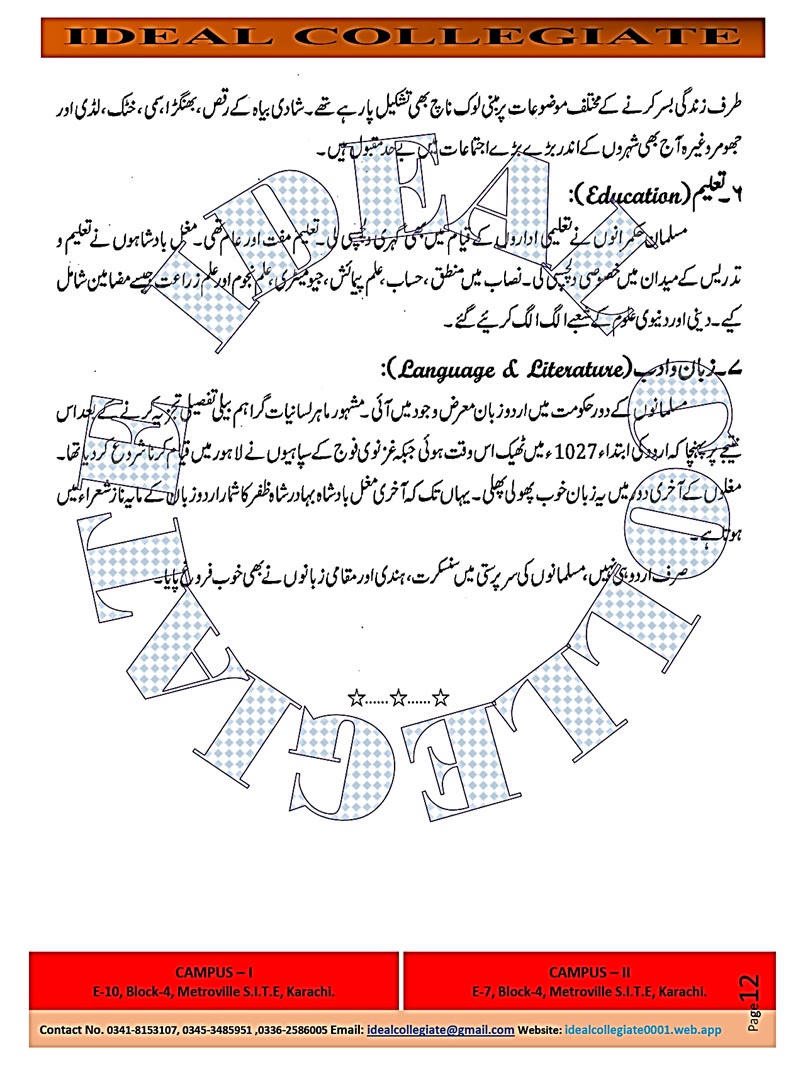 IDEAL COLLEGIATE
طرف زندگی بسر کرنے کے مختلف موضوعات پر مبنی لوک ناچ بھی تشکیل پا رہے تھے۔ شادی بیاہ کے رقص، بھنگڑا، سمی، خٹک، لڈی اور
جھومر وغیرہ آج بھی شہروں کے اندر بڑے بڑے اجتماعات میں بے حد مقبول ہیں۔
۶۔ تعلیم (Education):
مسلمان حکمرانوں نے تعلیمی اداروں کے قیام میں بھی گہری دلچسپی لی۔ تعلیم مفت اور عام تھی۔ مغل بادشاہوں نے تعلیم و
تدریس کے میدان میں خصوصی دلچسپی لی۔ نصاب میں منطق، حساب، علم پیمائش، جیومیٹری، علم نجوم اور علم زراعت جیسے مضامین شامل
کیے۔ دینی اور دنیوی علوم کے شعبے الگ الگ کر ئیے گئے۔
۷۔ زبان و ادب (Language & Literature):
مسلمانوں کے دور حکومت میں اردو زبان معرض وجود میں آئی۔ مشہور ماہر لسانیات گراہم بیلی تفصیلی تجزیہ کرنے کے بعد اس
نتیجے پر پہنچا کہ اردو کی ابتداء 1027ء میں ٹھیک اس وقت ہوئی جبکہ غزنوی فوج کے سپاہیوں نے لاہور میں قیام کرنا شروع کر دیا تھا۔
مغلوں کے آخری دور میں یہ زبان خوب پھولی پھلی۔ یہاں تک کہ آخری مغل بادشاہ بہادر شاہ ظفر کا شمار اردو زبان کے مایہ ناز شعراء میں
ہوتا ہے۔
صرف اردو ہی نہیں، مسلمانوں کی سرپرستی میں سنسکرت، ہندی اور مقامی زبانوں نے بھی خوب فروغ پایا۔
☆......☆......☆
IDEAL COLLEGIATE
CAMPUS – I
E-10, Block-4, Metroville S.I.T.E, Karachi.
CAMPUS – II
E-7, Block-4, Metroville S.I.T.E, Karachi.
Page 12
Contact No. 0341-8153107, 0345-3485951 ,0336-2586005 Email: idealcollegiate@gmail.com Website: idealcollegiate0001.web.app